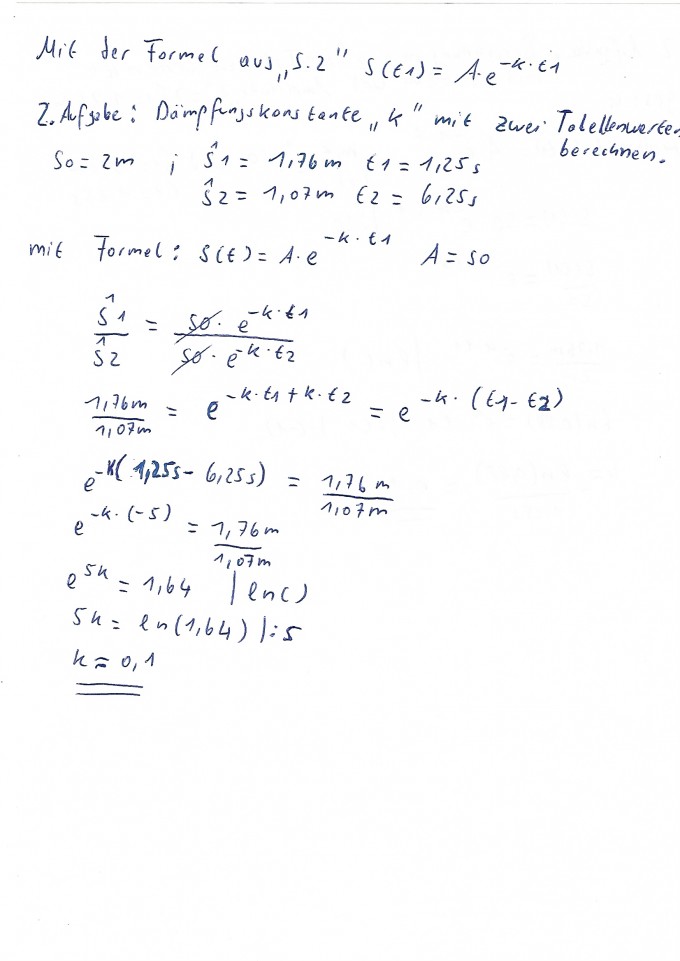 Mit der Formel aus „S.2" S(t1) = A·e^-k·t1
2. Aufgabe: Dämpfungskonstante „k" mit zwei Tabellenwerten
berechnen.
S0 = 2m ; ŝ1 = 1,76m t1 = 1,25s
ŝ2 = 1,07m t2 = 6,25s
mit Formel: S(t) = A·e^-k·t1 A = S0
ŝ1/ŝ2 = S0·e^-k·t1 / S0·e^-k·t2
1,76m/1,07m = e^-k·t1+k·t2 = e^-k·(t1-t2)
e^-k(1,25s-6,25s) = 1,76m/1,07m
e^-k·(-5) = 1,76m/1,07m
e^5k = 1,64 | ln()
5k = ln(1,64) |:5
k ≈ 0,1